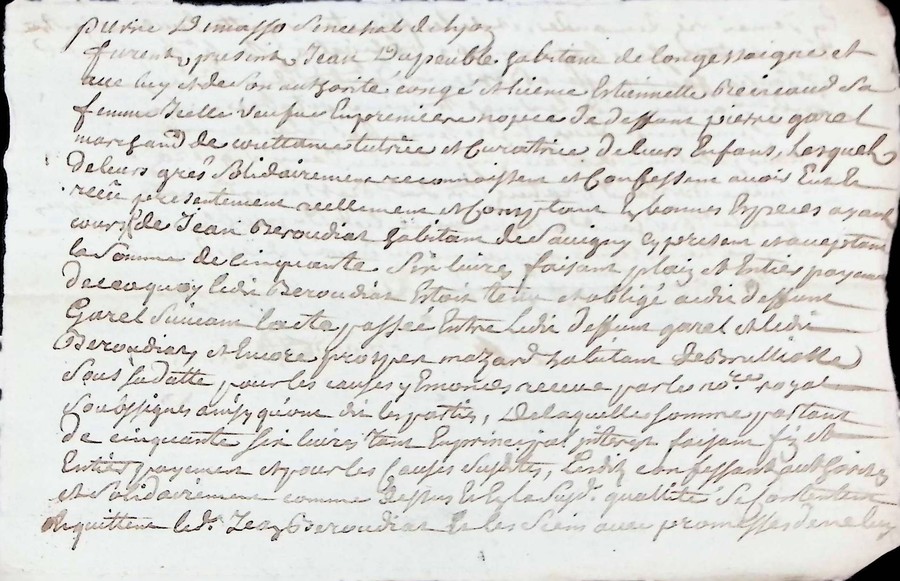 pierre Dumasso Senechal de lyon
furent present Jean Dupeuble habitant de longessaigne et
avec luy et de son authorité congé et licence Estiennette sa
femme Icelle veufue En premiere nopce de deffunt pierre garel
marchand de tutrice et Curatrice de leurs Enfans, Lesquels
de leurs grés Solidairement reconnoissent et Confessent auoir Eut et
receu presentement reellement et Comptant En bonnes Especes ayant
cours de Jean Beroudiat habitant de Sauigny cy present et acceptant
la Somme de cinquante Six liures faisant plain et Entier payement
de ce a quoy ledit Beroudiat Estoit tenu et obligé audit deffunt
Garel Suiuant lacte passée Entre ledit deffunt garel et ledit
Beroudiat et Encore mazard habitant de Brulliolle
Sous Sa datte pour les causes y Enoncés receue par le no.re royal
Soubssigné ainsy qu'ont dit les parties, De laquelle somme partant
de cinquante Six liures tant En principal interest faisant fin et
Entier payement et pour les Causes Susdites, Lesdits confessant
et Solidairement comme dessus Et En la Susd. qualitté Se Contentent
En quittent led. Jean Beroudiat Et les Siens auec promesses de ne luy